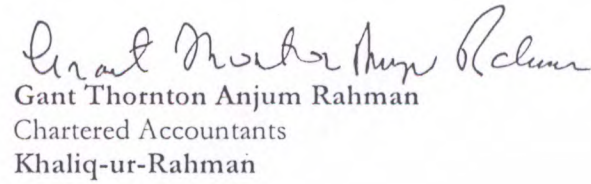 Grant Thornton Anjum Rahman
Gant Thornton Anjum Rahman
Chartered Accountants
Khaliq-ur-Rahman